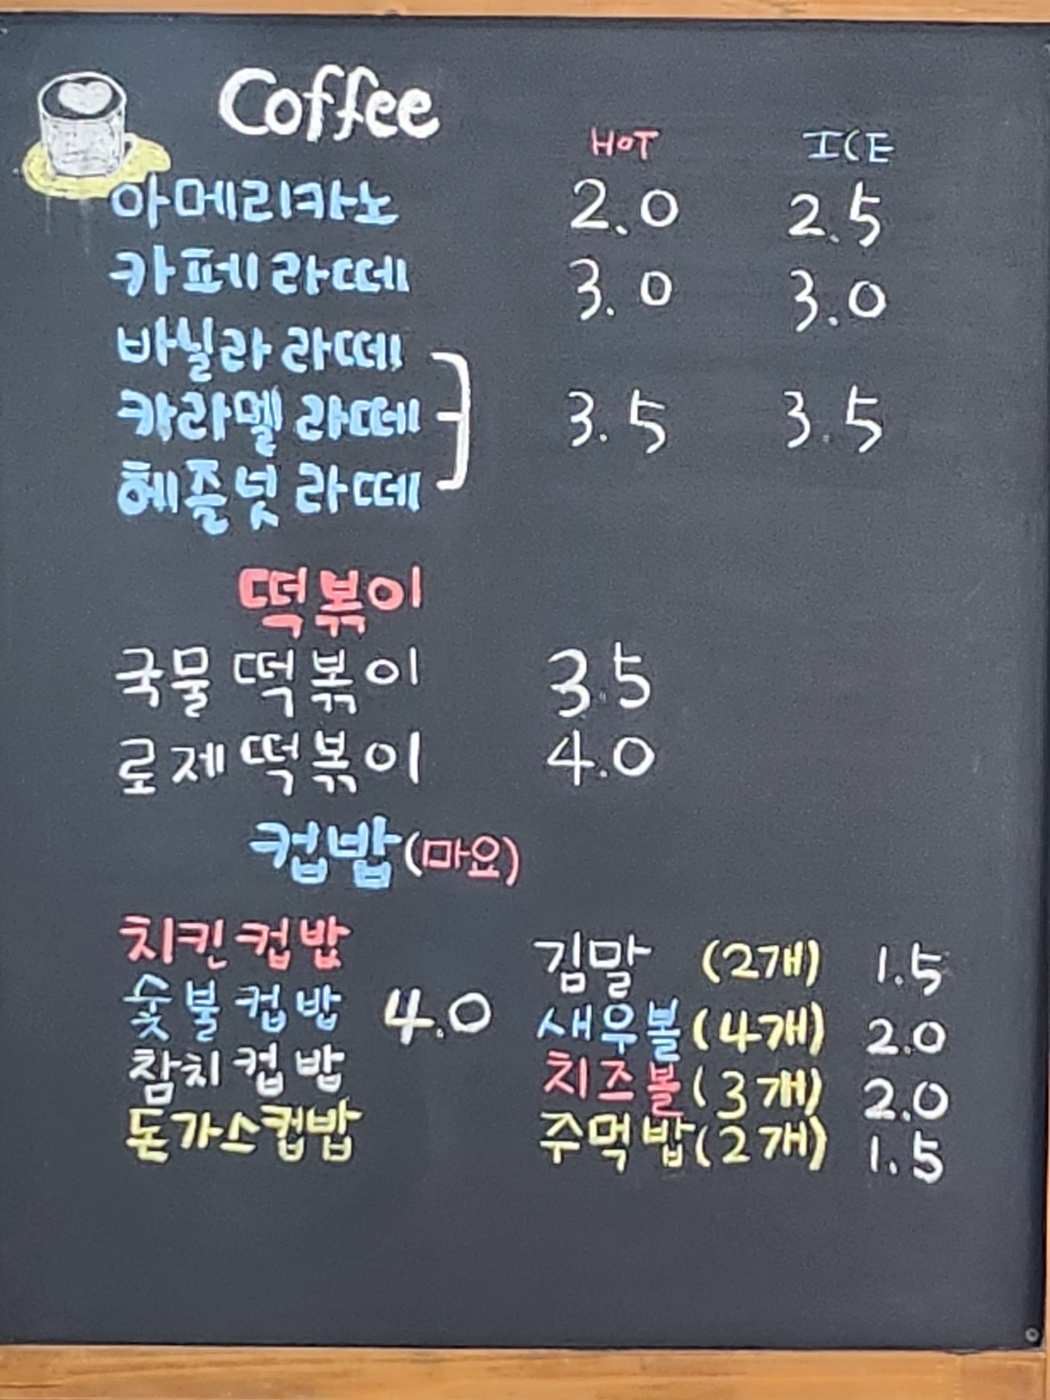 Coffee
HOT ICE
아메리카노 2.0 2.5
카페 라떼 3.0 3.0
바닐라 라떼
카라멜 라떼 3.5 3.5
헤즐넛 라떼
떡볶이
국물 떡볶이 3.5
로제 떡볶이 4.0
컵밥(마요)
치킨 컵밥
숯불 컵밥 4.0
참치 컵밥
돈가스컵밥
김말 (2개) 1.5
새우볼(4개) 2.0
치즈볼(3개) 2.0
주먹밥(2개) 1.5